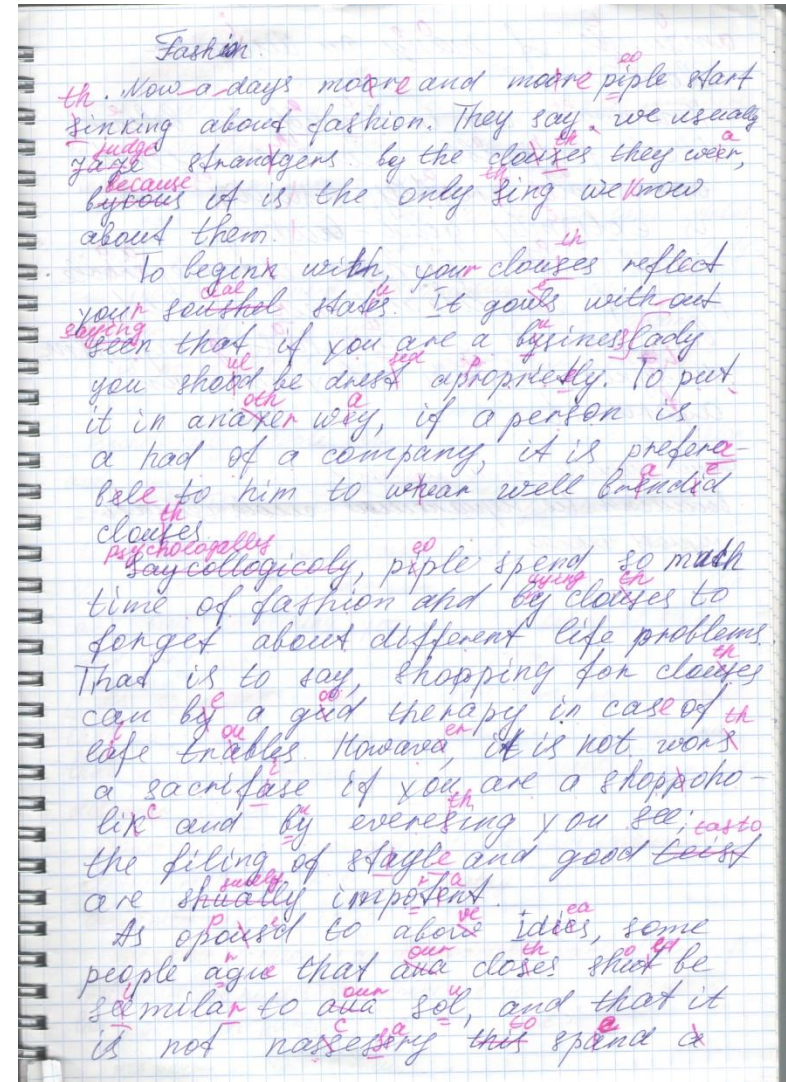 Fashion.
eo
th. Now a days moare and moare piple start
sinking about fashion. They say, we usually
judge th a
jaje strandgers by the clouses they weer,
because th
bycous it is the only sing we know
about them.
th
To beginn with, your clouses reflect
cial u e
your soushel states. It gouls without
saying u
seen that if you are a bysiness lady
ul sed p
you shood be drest aproprietly. To put
oth a
it in anaxer wey, if a person is
a had of a company, it is prefera-
a e
bele to him to whear well brendid
th
clouses.
psychologally eo
Saycollogicoly, piple spend so much
uying th
time of fashion and by clouses to
forget about different life problems.
th
That is to say, shopping for clouses
e oo
can by a gud therapy in case of
i ou er th
lafe trables. Howava, it is not wors
i
a sacrifase if you are a shoppoho-
c u th
lik and by everesing you see;
tasto
the filing of stagle and good teist
surely r a
are shually impotent.
p e ve ea
As opoused to above idies, some
r our th o ld
people agie that aua closes shut be
i our u
seemilar to aua sol, and that it
c a to e
is not nassessery this spand a